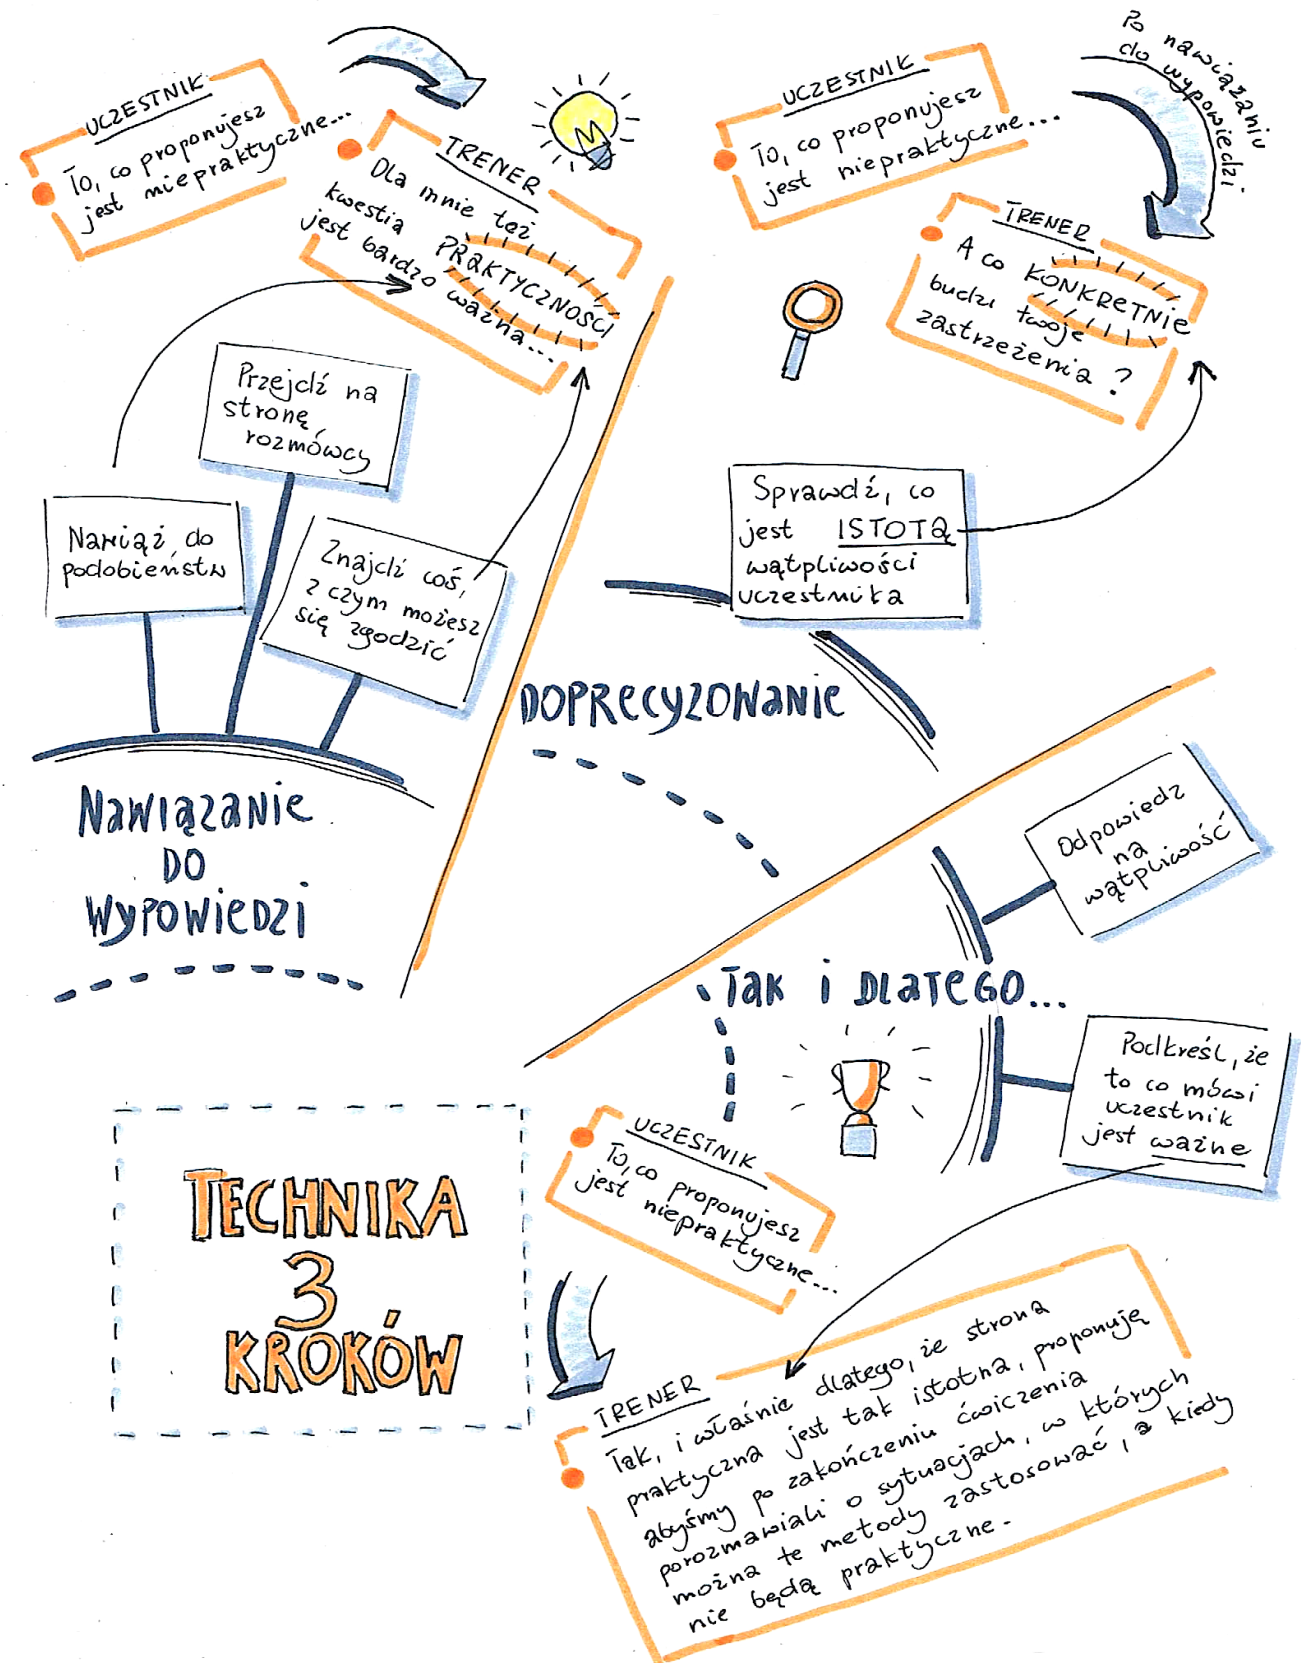 UCZESTNIK
To, co proponujesz
jest niepraktyczne...
TRENER
Dla mnie też
kwestia PRAKTYCZNOŚCI
jest bardzo ważna...
Przejdź na
stronę
rozmówcy
Nawiąż do
podobieństw
Znajdź coś,
z czym możesz
się zgodzić
NAWIĄZANIE
DO
WYPOWIEDZI
UCZESTNIK
To, co proponujesz
jest niepraktyczne...
Po nawiązaniu
do wypowiedzi
TRENER
A co KONKRETNIE
budzi twoje
zastrzeżenia?
Sprawdź, co
jest ISTOTĄ
wątpliwości
uczestnika
DOPRECYZOWANIE
Odpowiedz
na
wątpliwość
TAK i DLATEGO...
Podkreśl, że
to co mówi
uczestnik
jest ważne
UCZESTNIK
To, co proponujesz
jest niepraktyczne...
TRENER
Tak, i właśnie dlatego, że strona
praktyczna jest tak istotna, proponuję
abyśmy po zakończeniu ćwiczenia
porozmawiali o sytuacjach, w których
można te metody zastosować, a kiedy
nie będą praktyczne.
TECHNIKA
3
KROKÓW